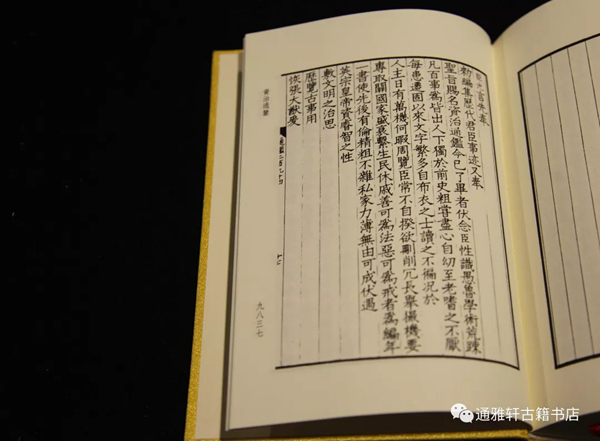 臣光言先奉
勑編集歷代君臣事迹又奉
聖旨賜名資治通鑑今已了畢者伏念臣性識愚魯學術荒踈
凡百事爲皆出人下獨於前史粗嘗盡心自幼至老嗜之不厭
每患遷固以來文字繁多自布衣之士讀之不徧況於
人主日有萬機何暇周覽臣常不自揆欲刪削冗長舉撮機要
專取關國家盛衰繫生民休戚善可爲法惡可爲戒者爲編年
一書使先後有倫精粗不雜私家力薄無由可成伏遇
英宗皇帝資睿智之性
敷文明之治思
歷覽古事用
恢張大猷爰
二百九十四
資治通鑑
九八三七
通雅轩古籍书店